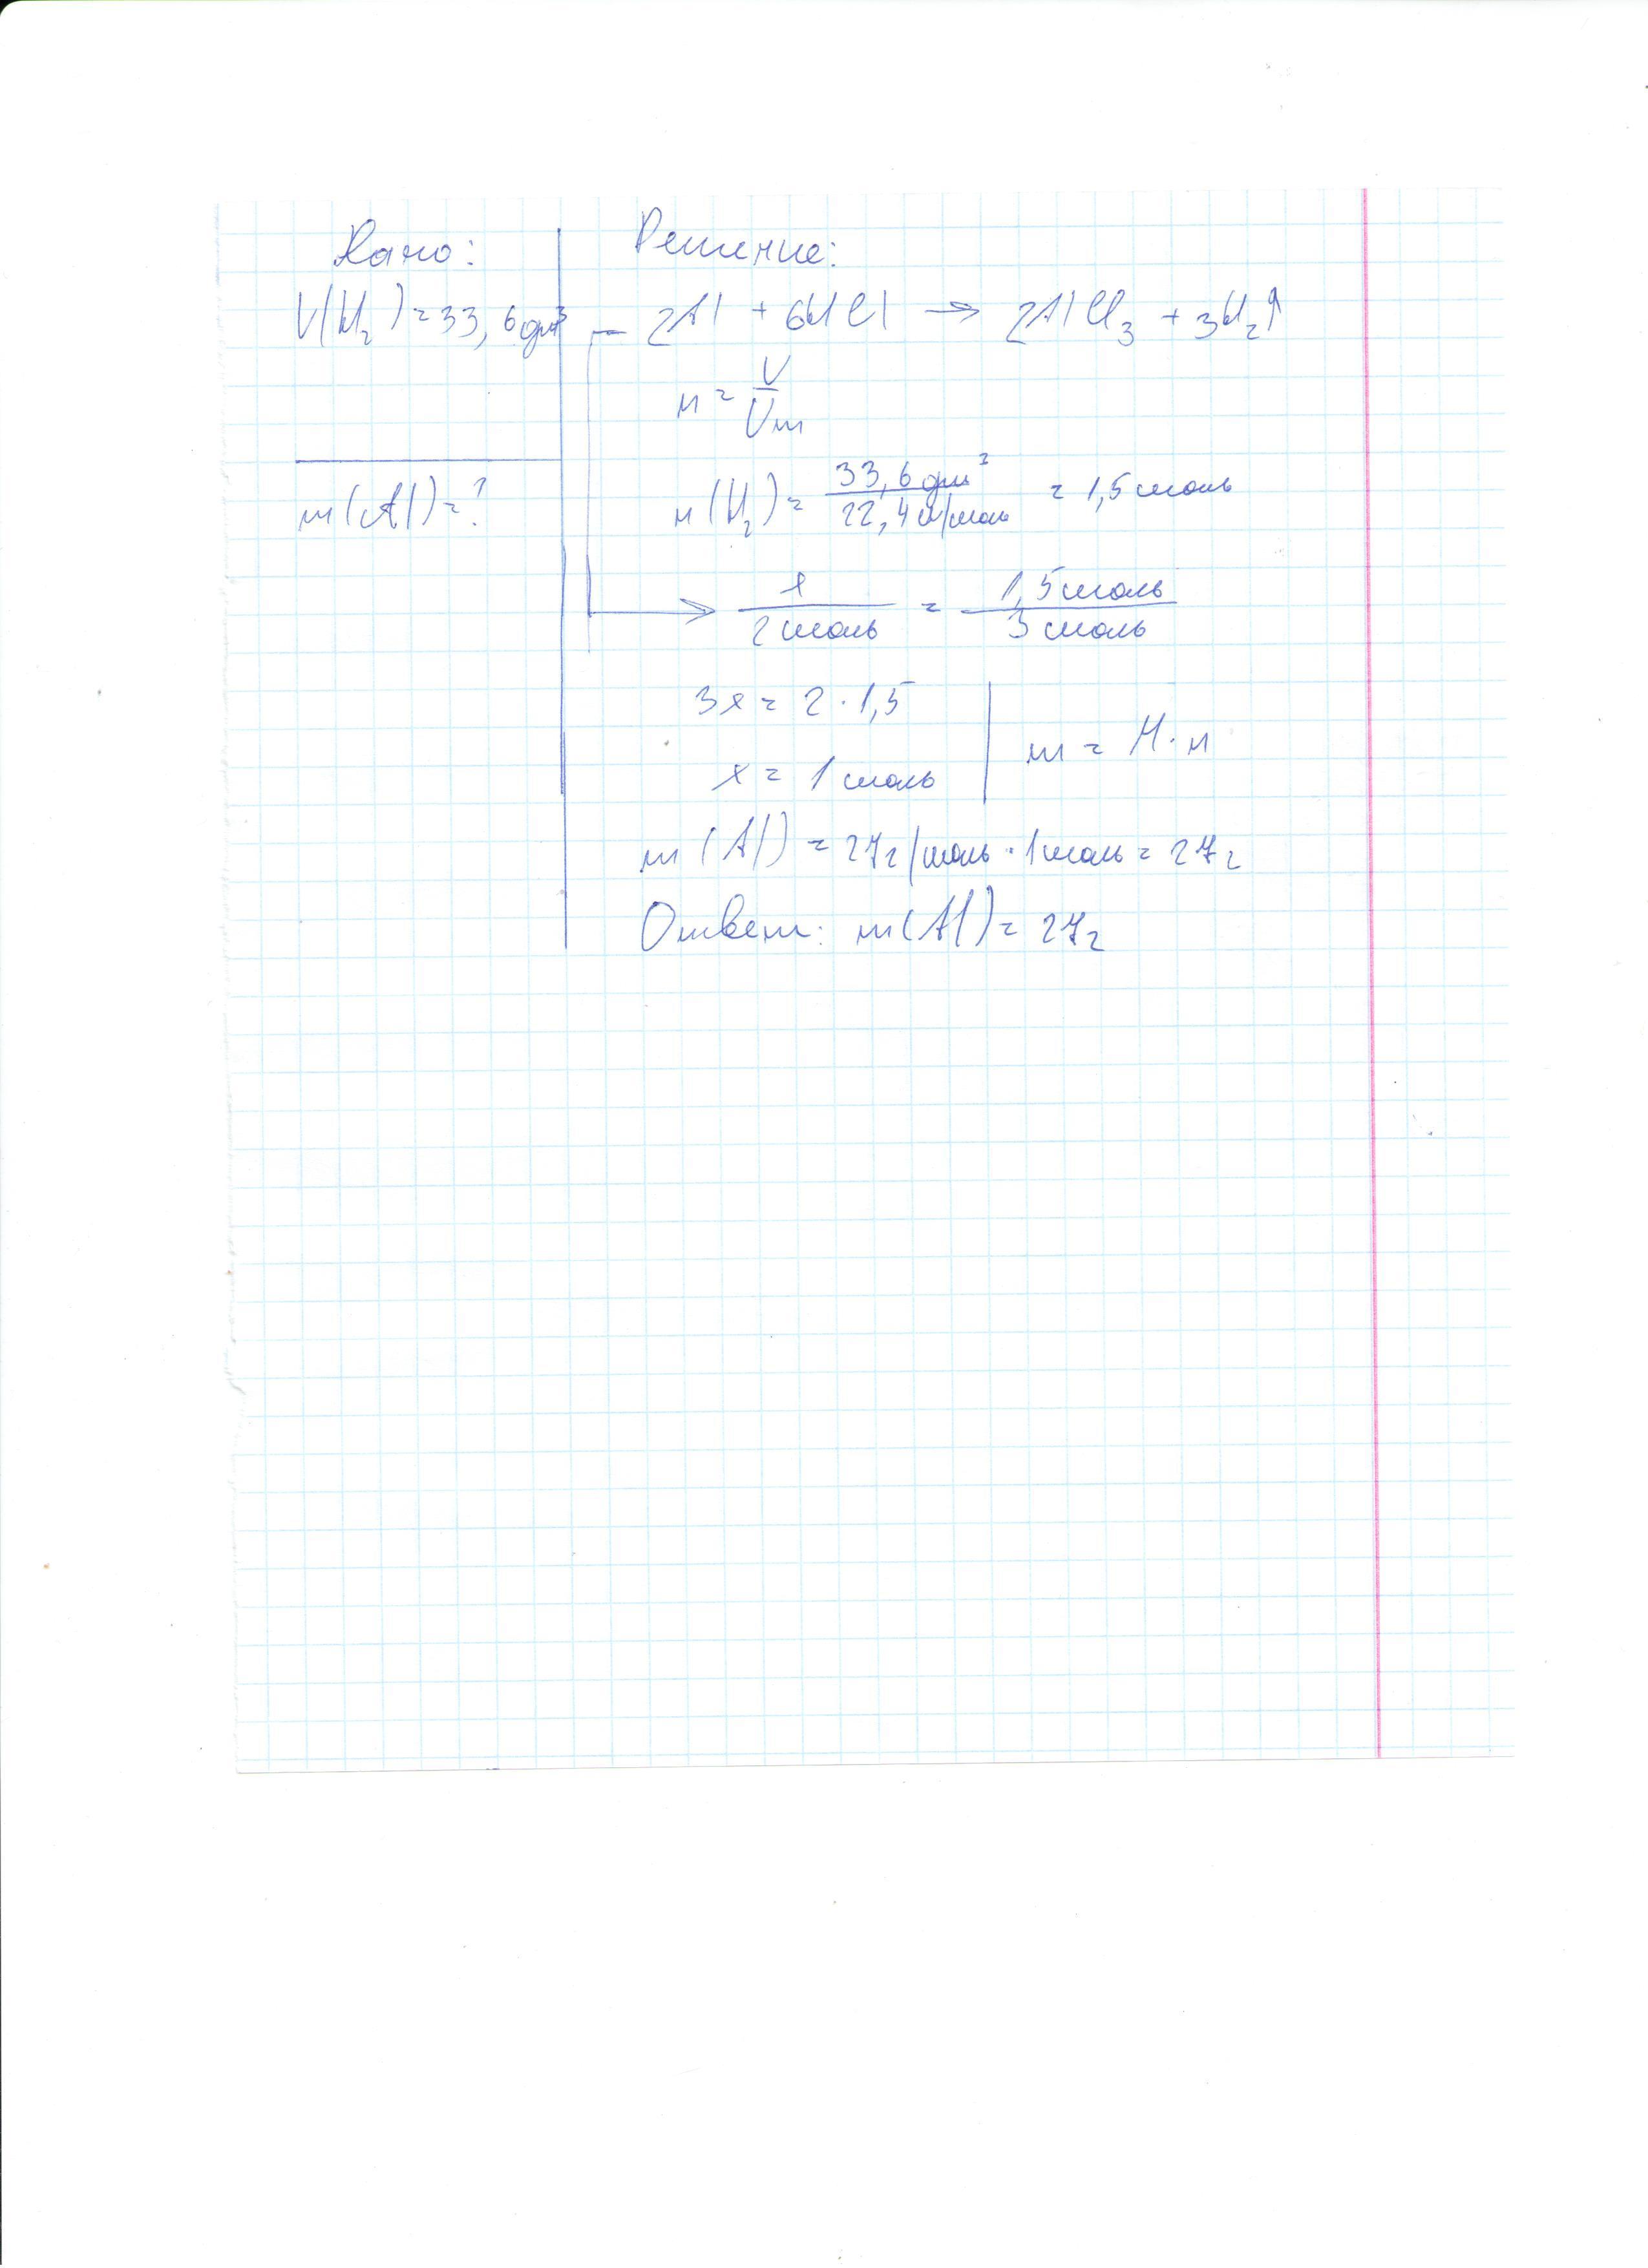 Дано:
V(H₂) = 33,6 дм³
m(Al) = ?
Решение:
2Al + 6HCl → 2AlCl₃ + 3H₂↑
n = V/Vm
n(H₂) = 33,6 дм³ / 22,4 л/моль = 1,5 моль
x / 2 моль = 1,5 моль / 3 моль
3x = 2 · 1,5
x = 1 моль | m = M · n
m(Al) = 27 г/моль · 1 моль = 27 г
Ответ: m(Al) = 27 г